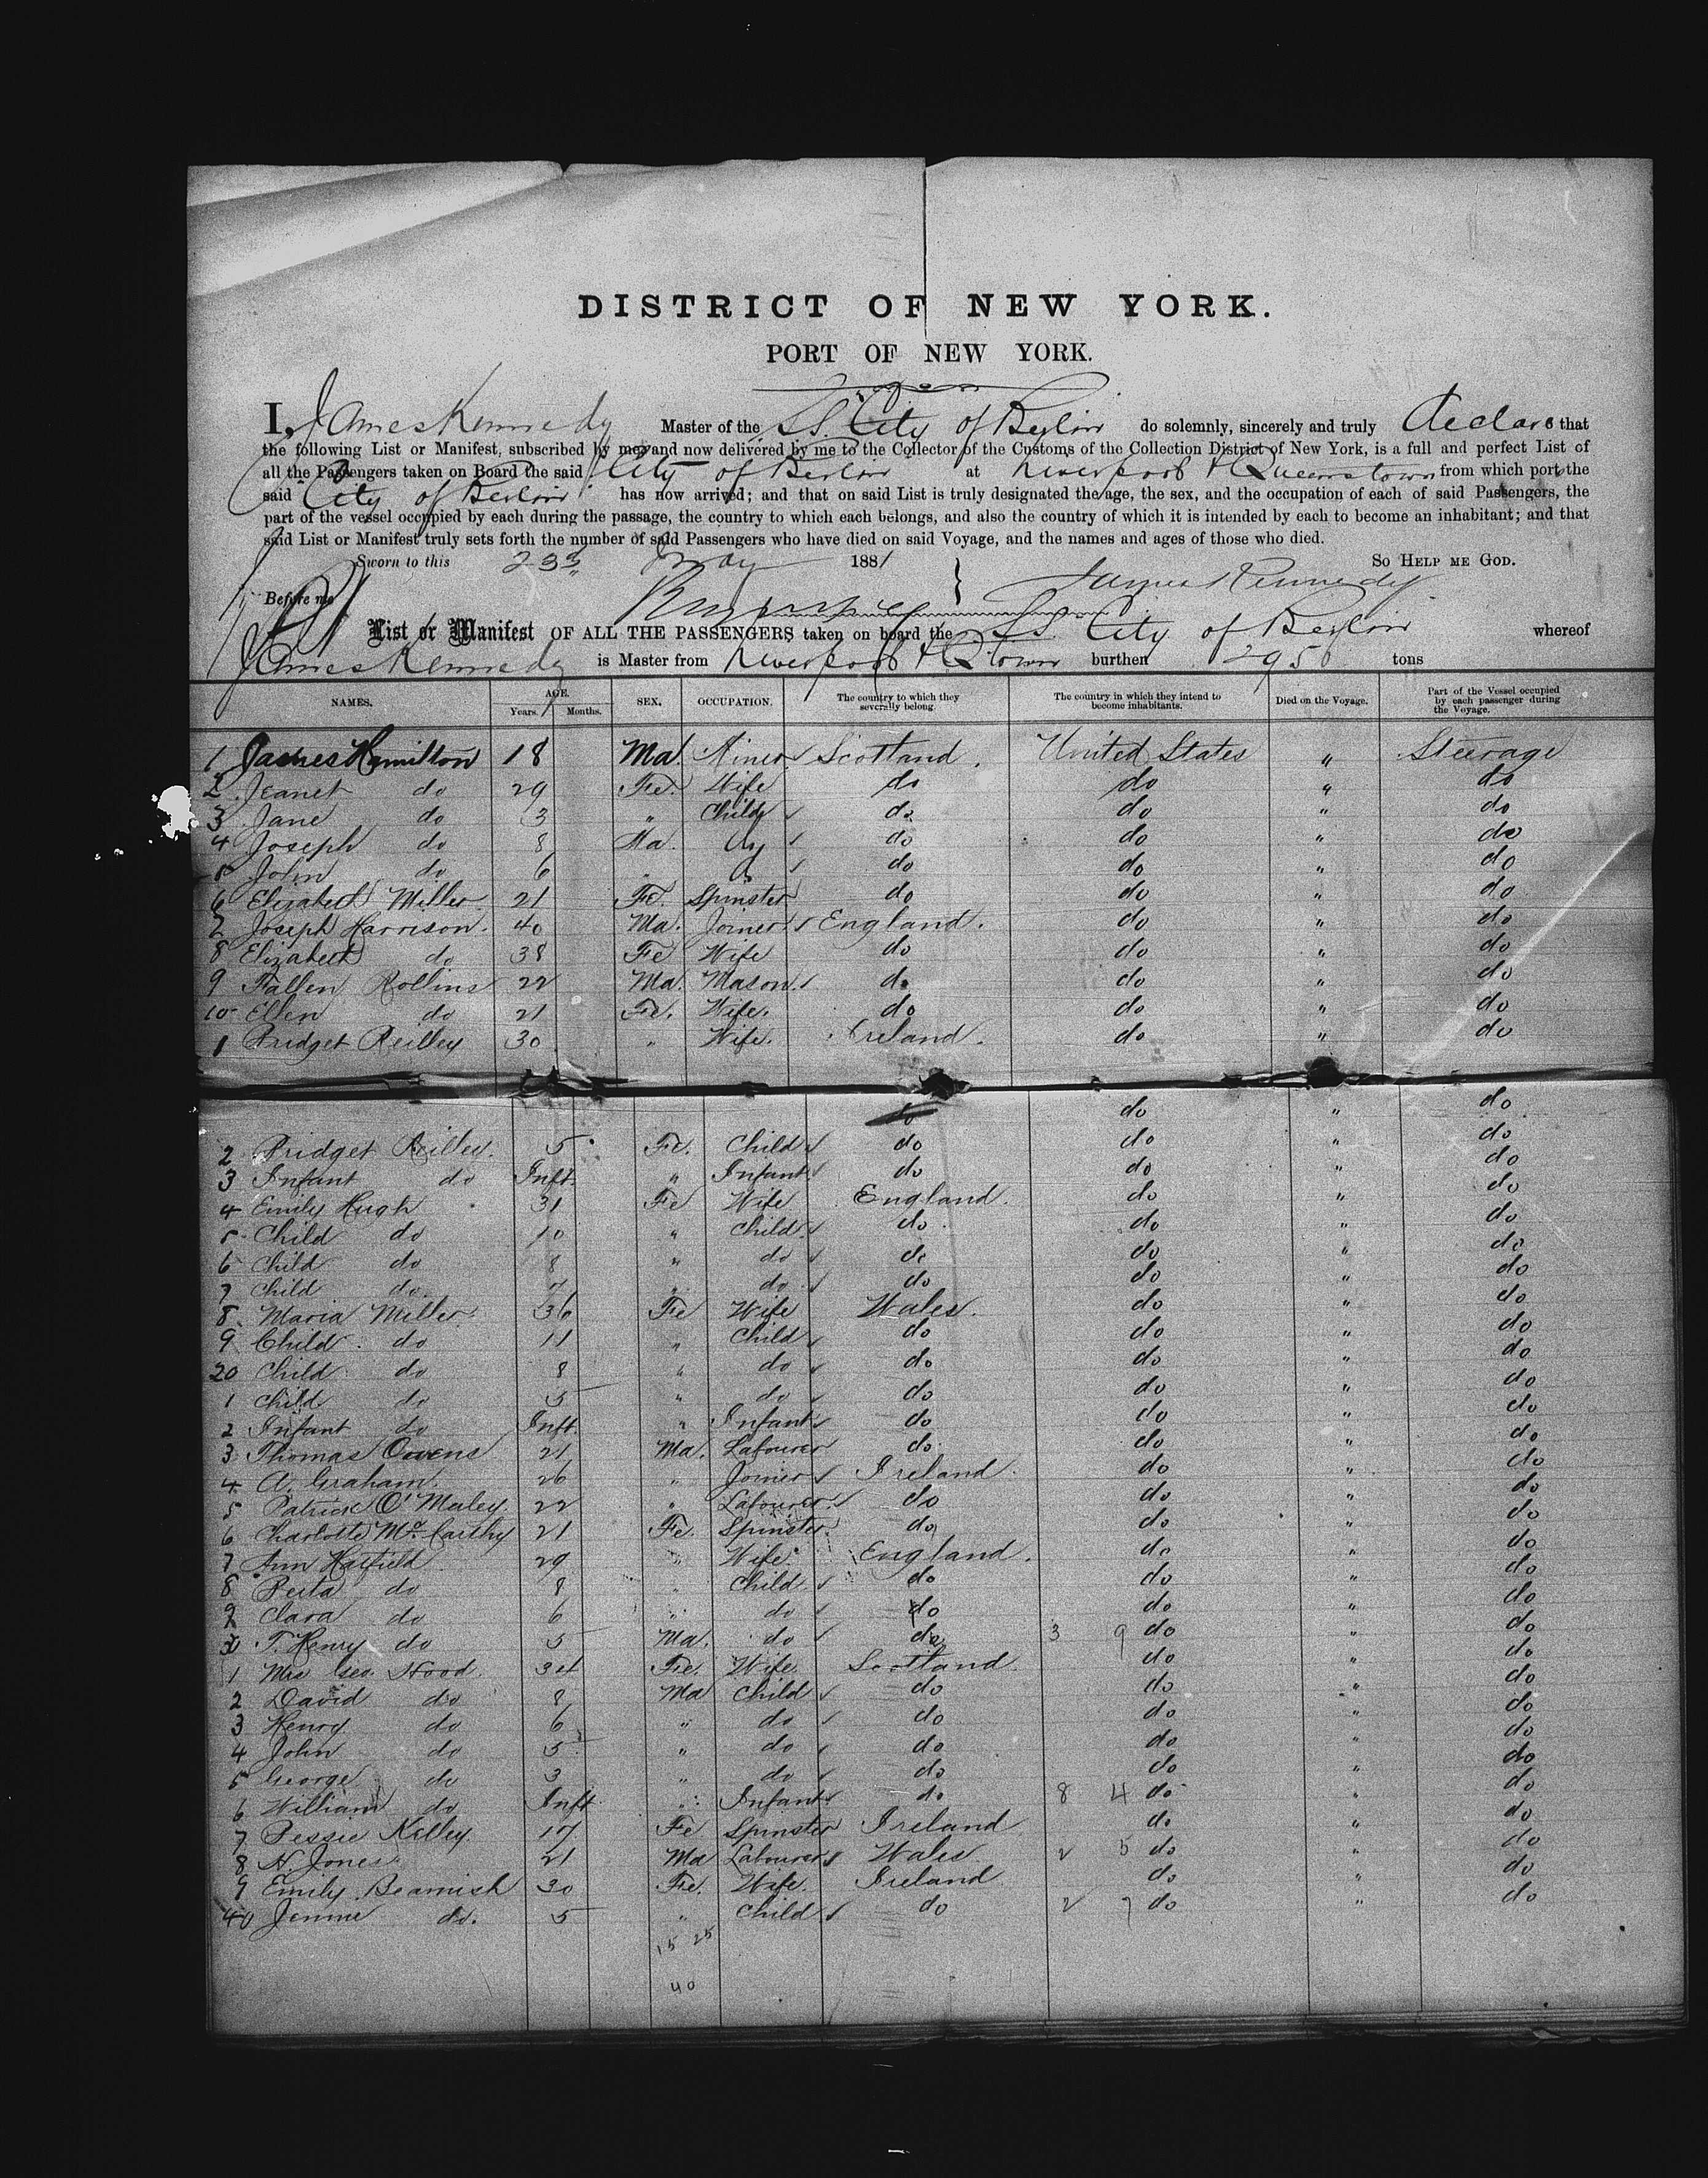 DISTRICT OF NEW YORK.
PORT OF NEW YORK.
I, James Kennedy Master of the SS. City of Berlin do solemnly, sincerely and truly declare that
the following List or Manifest, subscribed by me, and now delivered by me to the Collector of the Customs of the Collection District of New York, is a full and perfect List of
all the Passengers taken on Board the said City of Berlin at Liverpool & Queenstown from which port the
said City of Berlin has now arrived; and that on said List is truly designated the age, the sex, and the occupation of each of said Passengers, the
part of the vessel occupied by each during the passage, the country to which each belongs, and also the country of which it is intended by each to become an inhabitant; and that
said List or Manifest truly sets forth the number of said Passengers who have died on said Voyage, and the names and ages of those who died.
Sworn to this 23rd May 1881 SO HELP ME GOD.
Before me } James Kennedy
List or Manifest OF ALL THE PASSENGERS taken on board the SS City of Berlin whereof
James Kennedy is Master from Liverpool & Qtown burthen 2950 tons
NAMES. AGE. Years. Months. SEX. OCCUPATION. The country to which they severally belong. The country in which they intend to become inhabitants. Died on the Voyage. Part of the Vessel occupied by each passenger during the Voyage.
1 James Hamilton 18 Ma. Miner Scotland. United States " Steerage
2 Jeanet do 29 Fe. Wife do do " do
3 Jane do 3 " Child do do " do
4 Joseph do 8 Ma. do do " do
5 John do 6 " do do " do
6 Elizabeth Miller 21 Fe. Spinster do do " do
7 Joseph Harrison. 40 Ma. Joiner England. do " do
8 Elizabeth do 38 Fe Wife do do " do
9 Fallen Rollins 22 Ma. Mason do do " do
10 Ellen do 21 Fe. Wife. do do " do
1 Bridget Reilley 30 " Wife. Ireland. do " do
do do " do
2 Bridget Reilley. 5 Fe. Child do do " do
3 Infant do Inft. " Infant do do " do
4 Emily Hugh 31 Fe Wife England. do " do
5 Child do 10 " Child do do " do
6 Child do 8 " do do do " do
7 Child do. 7 " do do do " do
8 Maria Miller 36 Fe Wife Wales. do " do
9 Child do 11 " Child do do " do
20 Child do 8 " do do do " do
1 Child do 5 " do do do " do
2 Infant do Inft. " Infant do do " do
3 Thomas Owens 21 Ma. Labourer do do " do
4 A. Graham. 26 " Joiner Ireland. do " do
5 Patrick O'Maley. 22 " Labourer do do " do
6 Charlotte McCarthy 21 Fe. Spinster. do do " do
7 Ann Hatfield 29 " Wife. England. do " do
8 do 8 " Child do do " do
9 Clara do 6 " do do do " do
30 T. Henry do 5 Ma. do do 3 9 do " do
1 Mrs Geo. Hood. 34 Fe. Wife. Scotland. do " do
2 David do 8 Ma Child do do " do
3 Henry do 6 " do do do " do
4 John do 5 " do do do " do
5 George do 3 " do do do " do
6 William do Inft. " Infant do 8 4 do " do
7 Bessie Kelley. 17 Fe Spinster Ireland do " do
8 H. Jones 21 Ma Labourer Wales 2 5 do " do
9 Emily Beamish 30 Fe. Wife. Ireland do " do
40 Jennie do. 5 " Child do 2 7 do " do
15 25
40